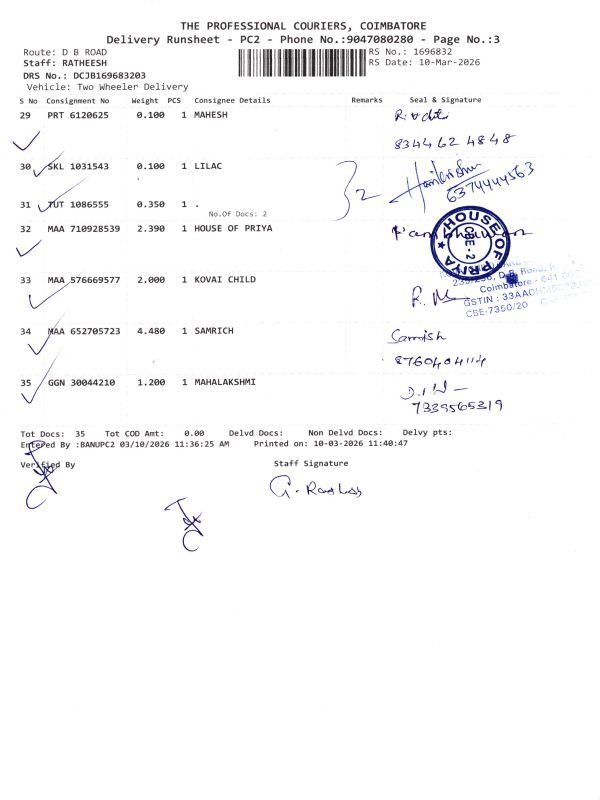 THE PROFESSIONAL COURIERS, COIMBATORE
Delivery Runsheet - PC2 - Phone No.:9047080280 - Page No.:3
Route: D B ROAD RS No.: 1696832
Staff: RATHEESH RS Date: 10-Mar-2026
DRS No.: DCJB169683203
Vehicle: Two Wheeler Delivery
S No Consignment No Weight PCS Consignee Details Remarks Seal & Signature
29 PRT 6120625 0.100 1 MAHESH
8344624848
30 SKL 1031543 0.100 1 LILAC
6374444563
31 TUT 1086555 0.350 1 . 2
No.Of Docs: 2
32 MAA 710928539 2.390 1 HOUSE OF PRIYA
HOUSE OF PRIYA CBE-2
33 MAA 576669577 2.000 1 KOVAI CHILD
D.B. Road,
Coimbatore - 641 002
GSTIN : 33AAO
CBE-7350/20
34 MAA 652705723 4.480 1 SAMRICH
8760404114
35 GGN 30044210 1.200 1 MAHALAKSHMI
7339565319
Tot Docs: 35 Tot COD Amt: 0.00 Delvd Docs: Non Delvd Docs: Delvy pts:
Entered By :BANUPC2 03/10/2026 11:36:25 AM Printed on: 10-03-2026 11:40:47
Verified By Staff Signature